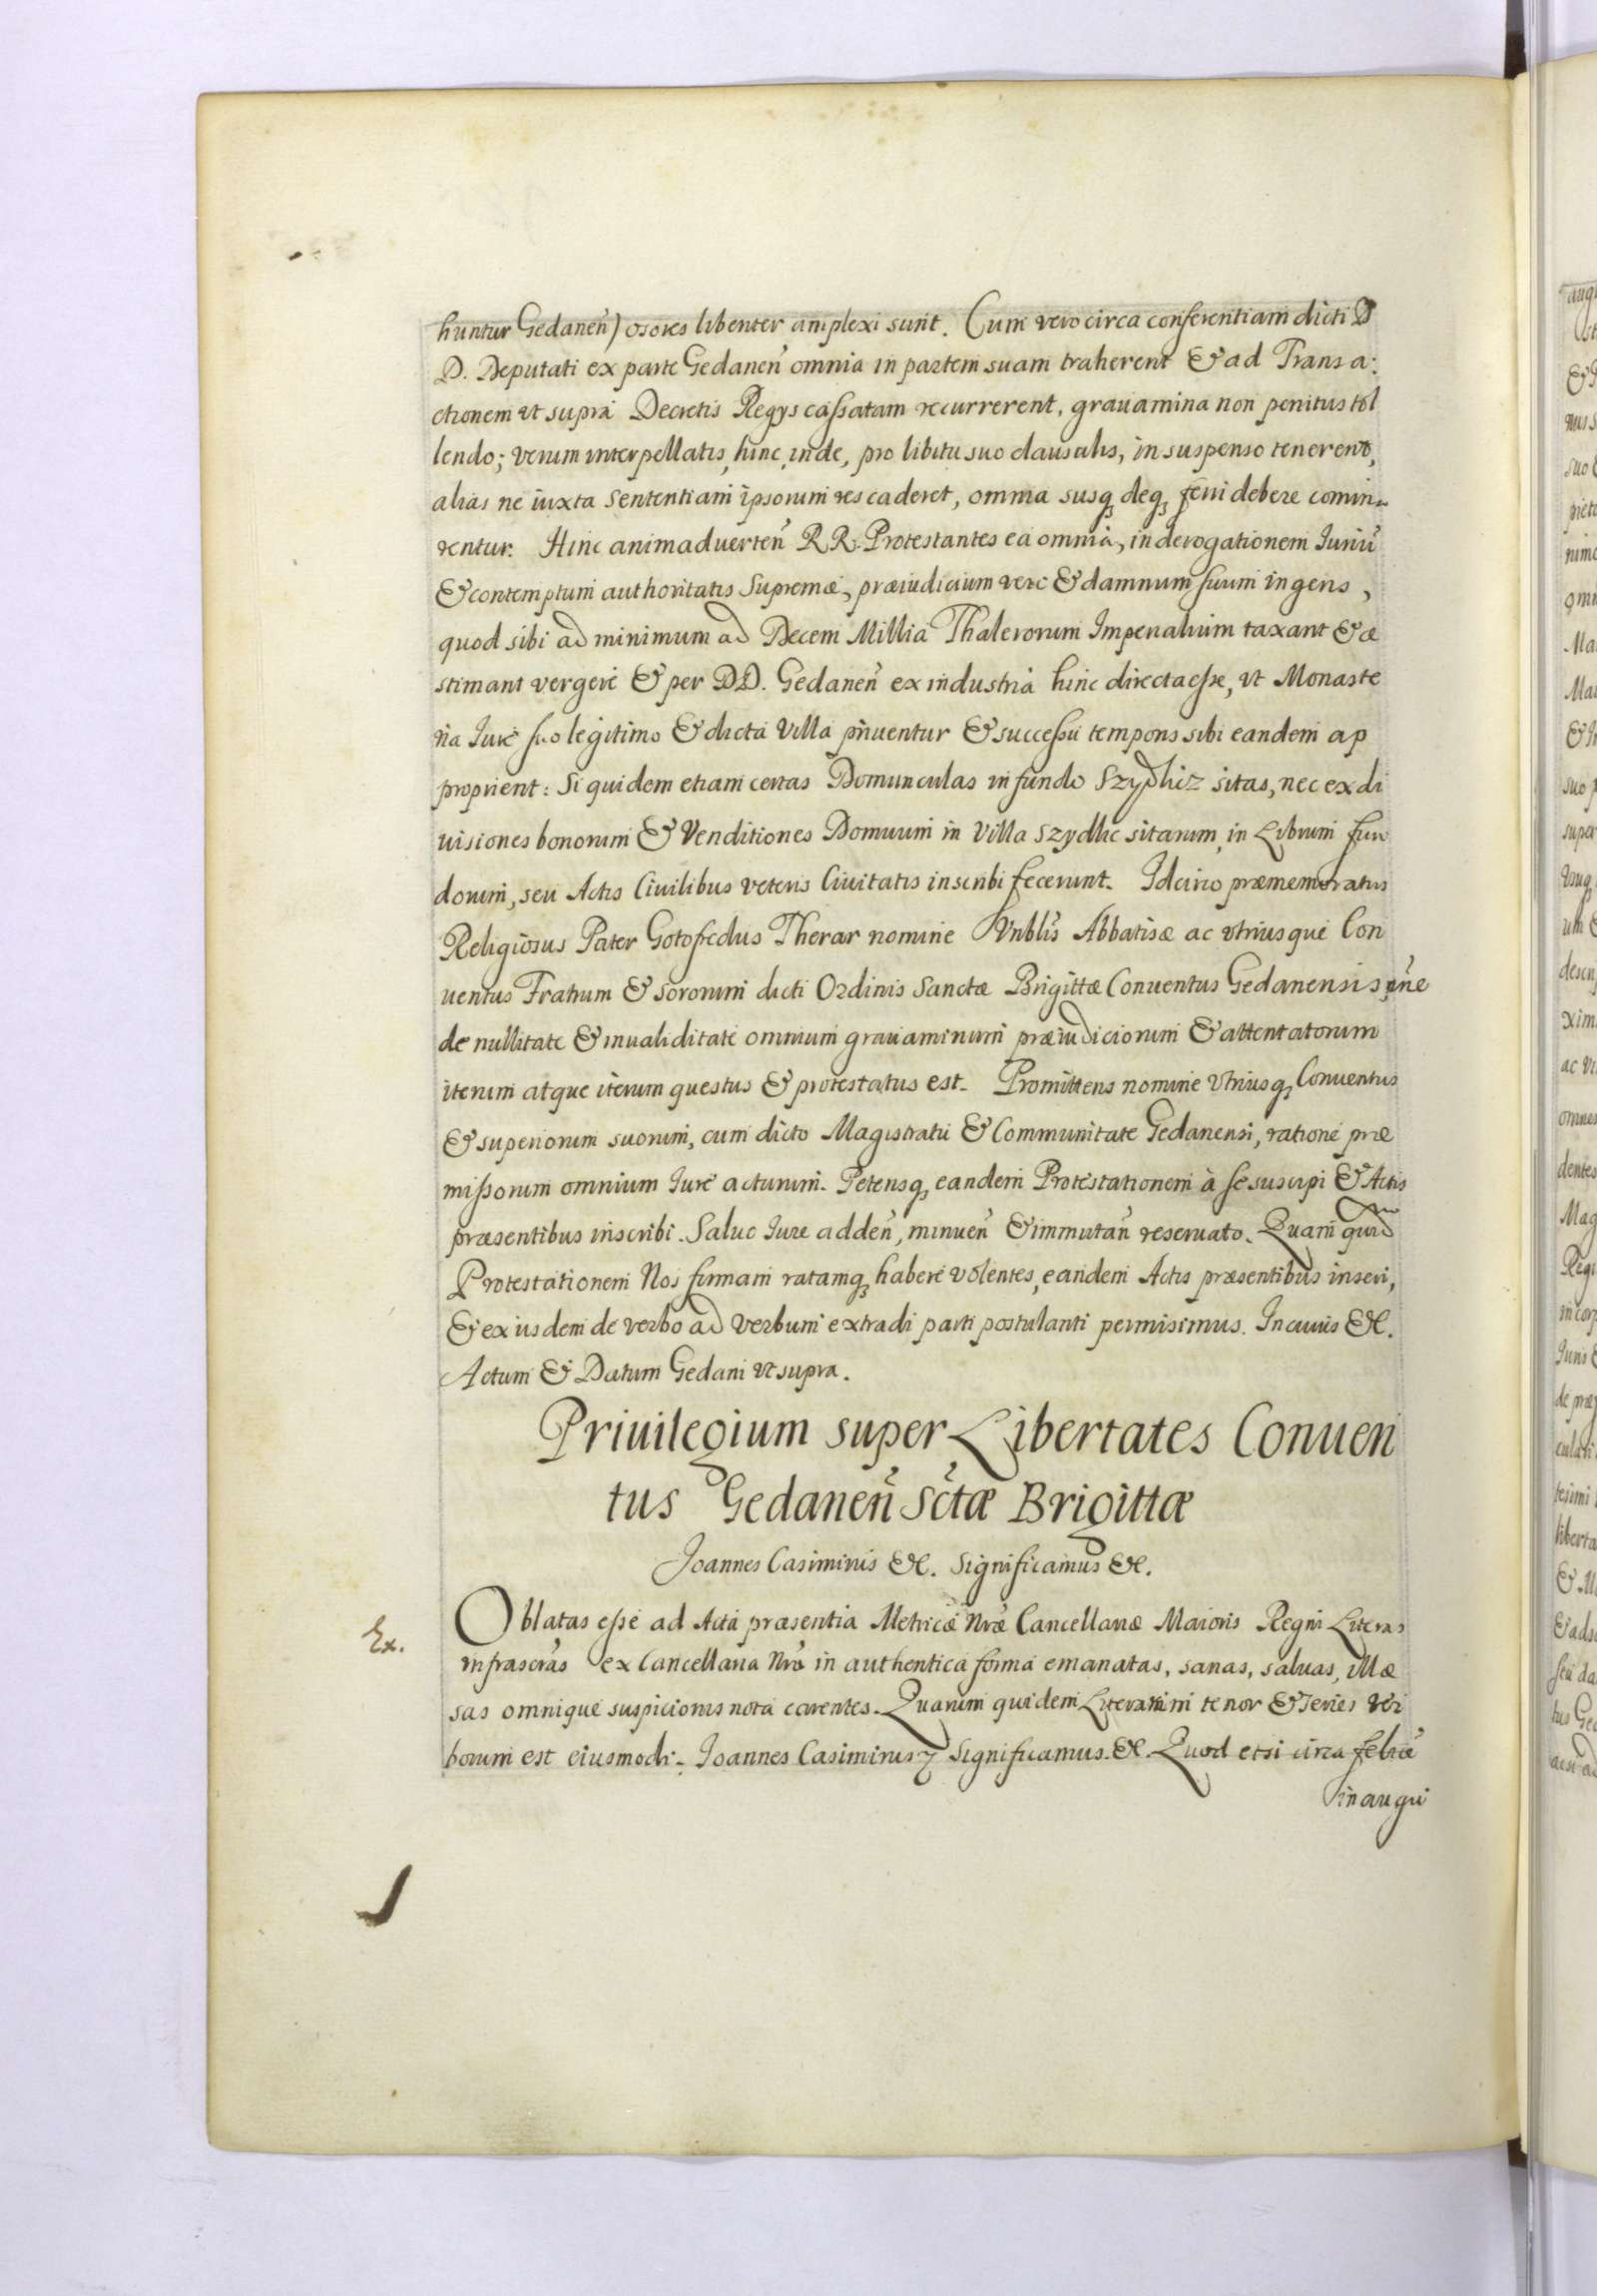 huntur Gedaneñ) osores libenter amplexi sunt. Cum vero circa conferentiam dicti D
D. Deputati ex parte Gedaneñ omnia in partem suam traherent & ad Transa:
ctionem vt supra Decretis Regys cassatam recurrerent, grauamina non penitus tol
lendo; verum interpellatis, hinc, inde, pro libitu suo clausulis, in suspenso tenerent,
alias ne iuxta sententiam ipsorum res caderet, omnia susq deq ferri debere commi
rentur. Hinc animaduerteñ RR. Protestantes ea omnia, in derogationem Juriu
& contemptum authoritatis Supremæ, præiudicium vero & damnum suum ingens,
quod sibi ad minimum ad Decem Millia Thalerorum Imperialium taxant & æ
stimant vergere & per DD. Gedaneñ ex industria hinc directa esse, vt Monaste
ria Jure suo legitimo & dicta Villa priuentur & successu temporis sibi eandem ap
proprient: Siquidem etiam certas Domunculas in fundo Szydlicz sitas, nec ex di
uisiones bonorum & Venditiones Domuum in Villa Szydlic sitarum, in Librum fun
dorum, seu Actis Ciuilibus veteris Ciuitatis inscribi fecerunt. Idcirco præmemoratus
Religiosus Pater Gotofredus Therar nomine Vnblis Abbatisæ ac vtriusque Con
uentus Fratrum & sororum dicti Ordinis Sanctæ Brigittæ Conuentus Gedanensis pñe
de nullitate & inualiditate omnium grauaminum præiudiciorum & attentatorum
iterum atque iterum questus & protestatus est. Promittens nomine vtriusq Conuentus
& superiorum suorum, cum dicto Magistratu & Communitate Gedanensi, ratione præ
missorum omnium Jure acturum. Petensq eandem Protestationem à se suscipi & Actis
præsentibus inscribi. Saluo Jure addeñ, minueñ & immutañ reseruato. Quam quid
Protestationem Nos firmam ratamq habere volentes, eandem Actis præsentibus inseri,
& ex iisdem de verbo ad verbum extradi parti postulanti permisimus. In cuius &c.
Actum & Datum Gedani vt supra.
Priuilegium super Libertates Conuen
tus Gedaneñ Sctæ Brigittæ
Joannes Casimirus &c. Significamus &c.
Ex.
Oblatas esse ad Acta præsentia Metricæ Nræ Cancellariæ Maioris Regni Literas
infrascras ex Cancellaria Nra in authentica forma emanatas, sanas, saluas, illæ
sas omnique suspicionis nota carentes. Quarum quidem Literarum tenor & series ver
borum est eiusmodi. Joannes Casimirus Significamus. &. Quod etsi circa felicé
inaugu